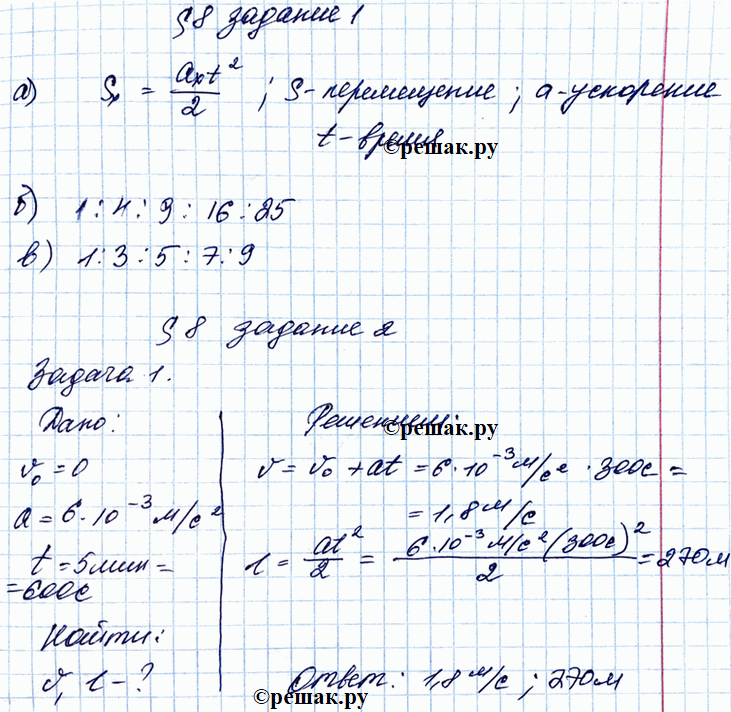 §8 задание 1
а) Sₓ = aₓt²/2 ; S-перемещение ; a-ускорение
t-время
©решак.ру
б) 1:4:9:16:25
в) 1:3:5:7:9
§8 задание 2
Задача 1.
Дано:
v₀=0
a=6·10⁻³ м/с²
t=5мин=
=600с
Найти:
v, l-?
Решение:
©решак.ру
v=v₀+at=6·10⁻³м/с²·300с=
=1,8м/с
l=at²/2=6·10⁻³м/с²(300с)²/2=270м
Ответ: 1,8м/с; 270м
©решак.ру